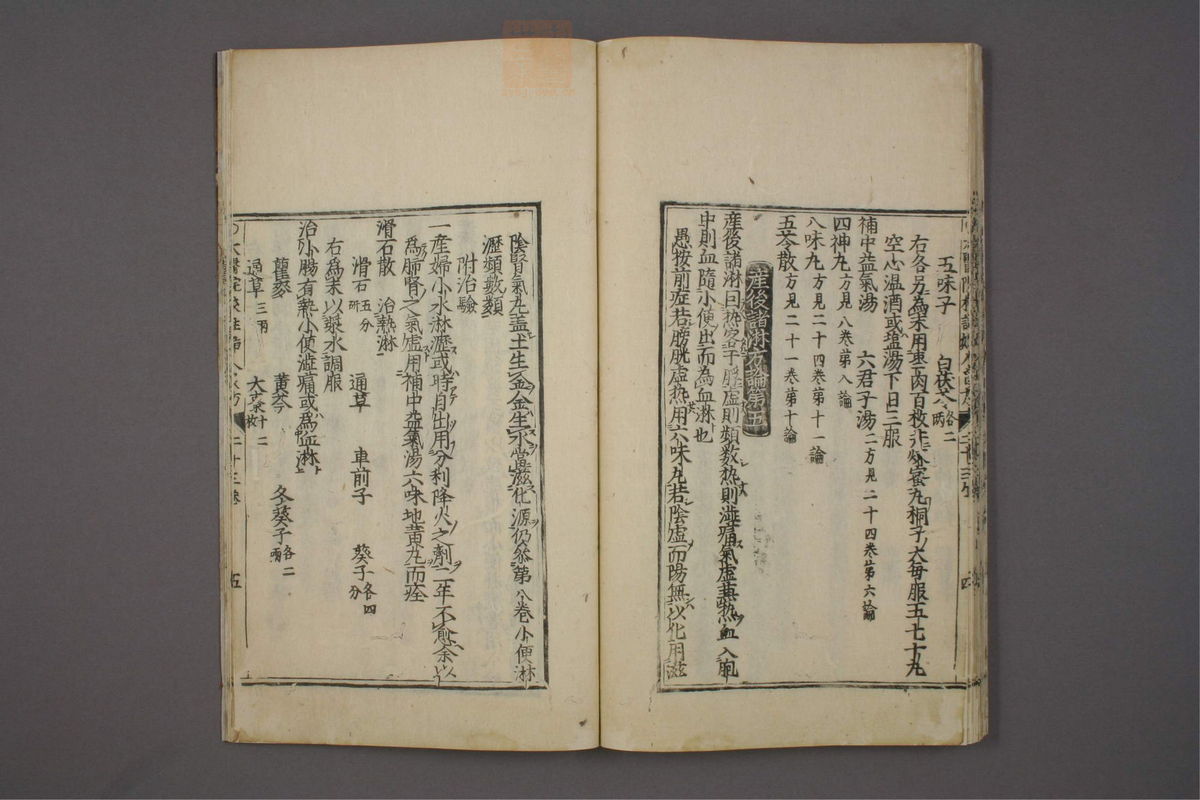 五味子　白茯苓各二兩
右各另為末用棗肉百枚並煉蜜丸桐子大每服五七十丸
空心温酒或塩湯下日三服
補中益氣湯　六君子湯二方見二十四卷第六論
四神丸方見八卷第八論
八味丸方見二十四卷第十一論
五苓散方見二十一卷第十論
産後諸淋方論第五
産後諸淋曰熱客于脬虛則頻数熱則澁痛氣虛兼熱血入胞
中則血隨小便出而為血淋也
愚按前症若膀胱虛熱用六味丸若陰虛而陽無以化用滋
陰腎氣丸盖土生金金生水當滋化源仍叅第八卷小便淋
瀝頻數類
附治驗
一産婦小水淋瀝或時自出用分利降火之劑二年不愈余以
為肺腎之氣虛用補中益氣湯六味地黄丸而痊
滑石散　治熱淋
滑石五分研　通草　車前子　葵子各四分
右為末以漿水調服
治小腸有熱小便澁痛或為血淋
瞿麥　黄芩　冬葵子各二兩
通草三兩　大棗十二枚
二十三卷　五